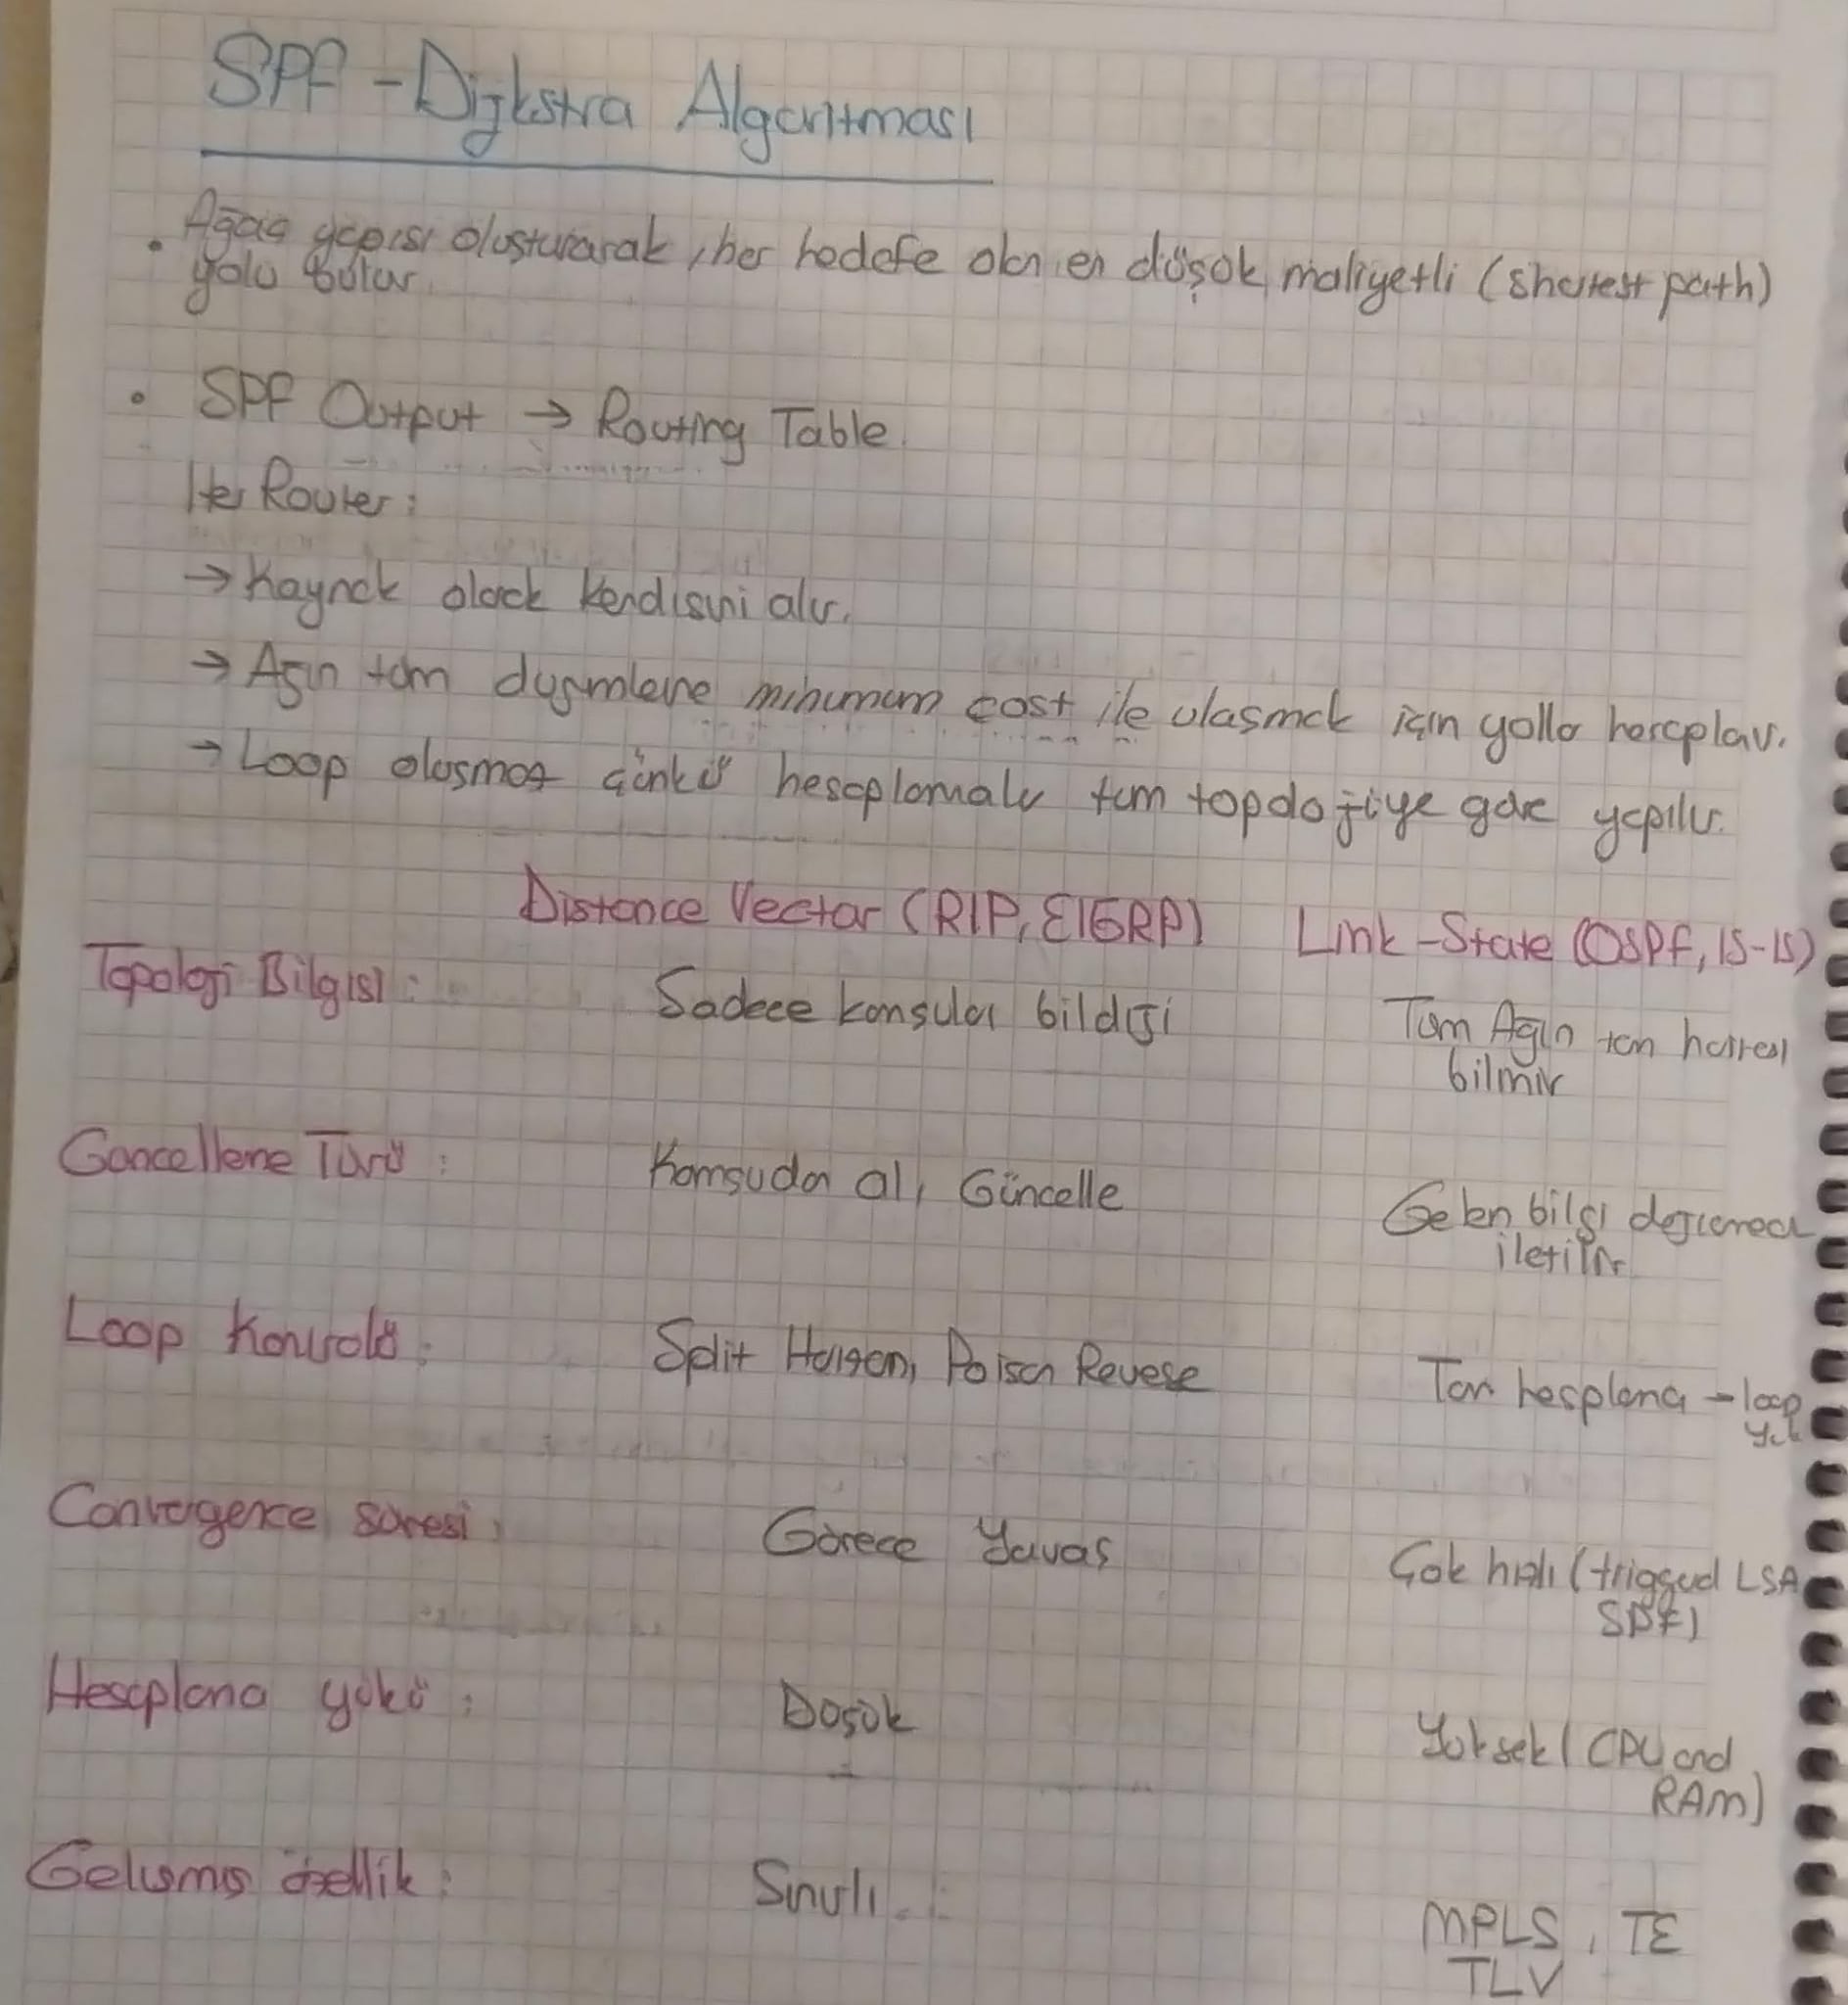 SPF - Dijkstra Algoritması
• Ağaç yapısı oluşturarak, her hedefe olan en düşük maliyetli (shortest path)
yolu bulur.
• SPF Output → Routing Table
Her Router:
→ Kaynak olarak kendisini alır.
→ Ağın tüm düğümlerine minimum cost ile ulaşmak için yolları hesaplar.
→ Loop oluşmaz çünkü hesaplamalar tüm topolojiye göre yapılır.
Distance Vector (RIP, EIGRP) Link-State (OSPF, IS-IS)
Topoloji Bilgisi: Sadece komşuları bildiği Tüm Ağın tam haritası
bilinir
Güncelleme Türü: Komşudan al, Güncelle Gelen bilgi değişmeden
iletilir
Loop Kontrolü: Split Horizon, Poison Reverse Tam hesaplama - loop
yok
Convergence süresi: Görece Yavaş Çok hızlı (trigged LSA
SPF)
Hesaplama yükü: Düşük Yüksek (CPU and
RAM)
Gelişmiş özellik: Sınırlı MPLS, TE
TLV